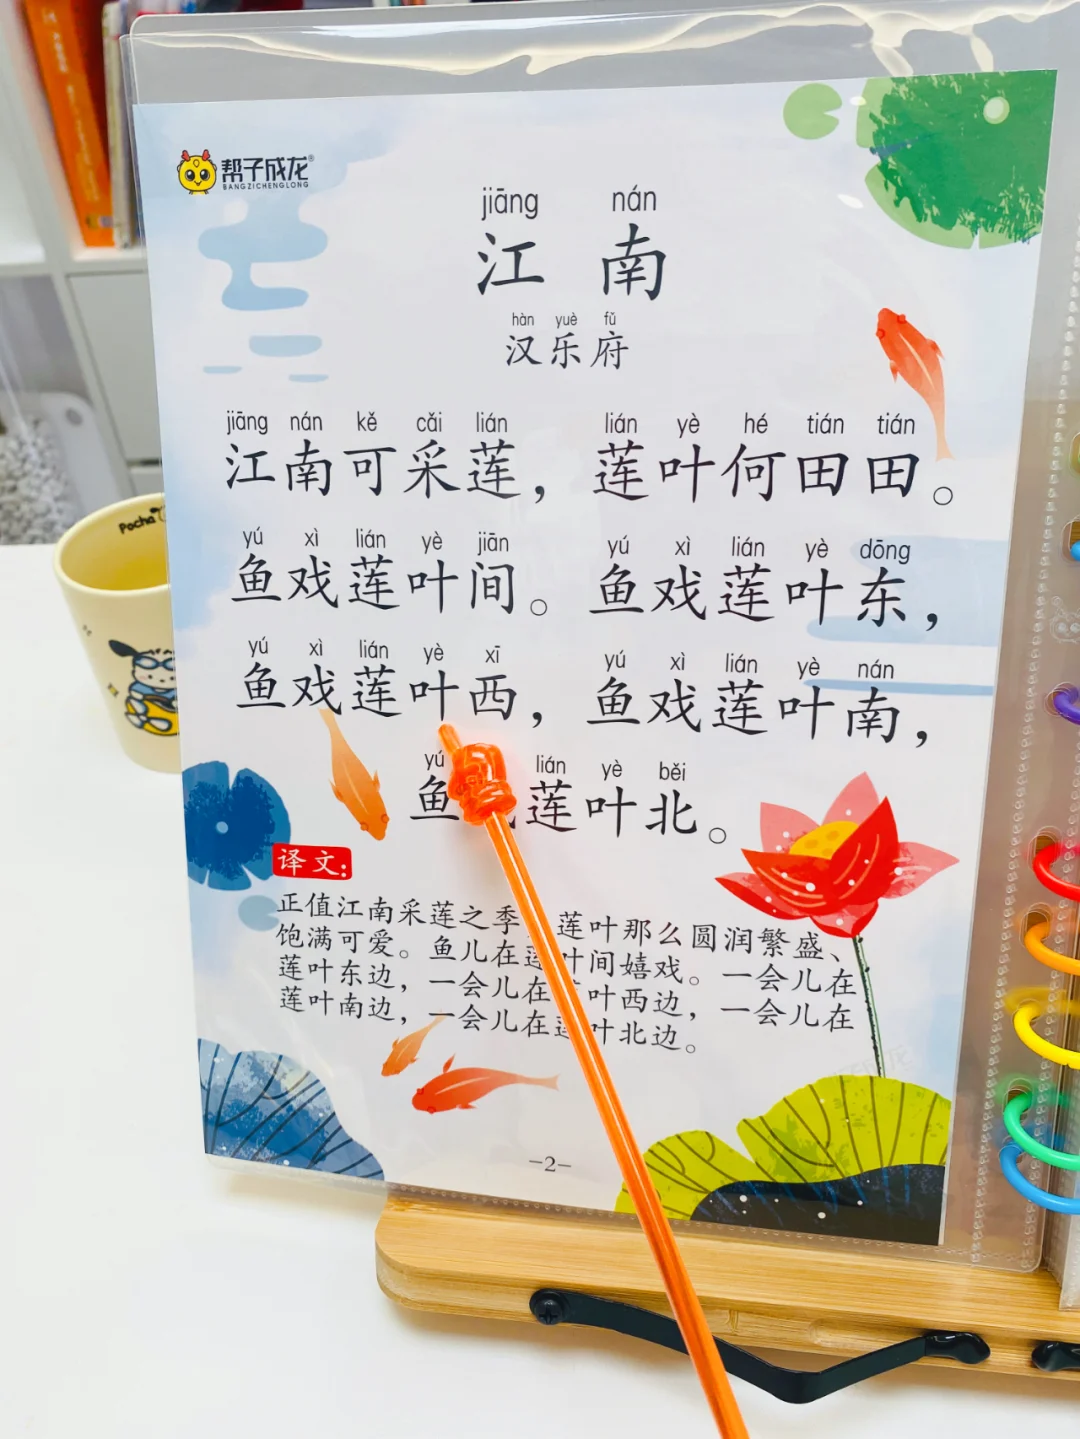 帮子成龙®
BANGZICHENGLONG
jiāng nán
江南
hàn yuè fǔ
汉乐府
jiāng nán kě cǎi lián lián yè hé tián tián
江南可采莲，莲叶何田田。
yú xì lián yè jiān yú xì lián yè dōng
鱼戏莲叶间。鱼戏莲叶东，
yú xì lián yè xī yú xì lián yè nán
鱼戏莲叶西，鱼戏莲叶南，
yú lián yè běi
鱼莲叶北。
译文：
正值江南采莲之季 莲叶那么圆润繁盛、
饱满可爱。鱼儿在莲叶间嬉戏。一会儿在
莲叶东边，一会儿在 叶西边，一会儿在
莲叶南边，一会儿在莲叶北边。
-2-
Pocha